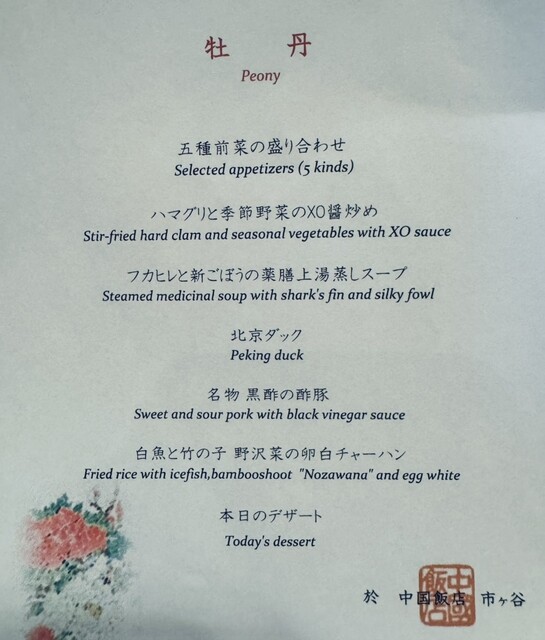 牡 丹
Peony
五種前菜の盛り合わせ
Selected appetizers (5 kinds)
ハマグリと季節野菜のXO醤炒め
Stir-fried hard clam and seasonal vegetables with XO sauce
フカヒレと新ごぼうの薬膳上湯蒸しスープ
Steamed medicinal soup with shark's fin and silky fowl
北京ダック
Peking duck
名物 黒酢の酢豚
Sweet and sour pork with black vinegar sauce
白魚と竹の子 野沢菜の卵白チャーハン
Fried rice with icefish,bambooshoot "Nozawana" and egg white
本日のデザート
Today's dessert
於 中国飯店 市ヶ谷
中國
飯店